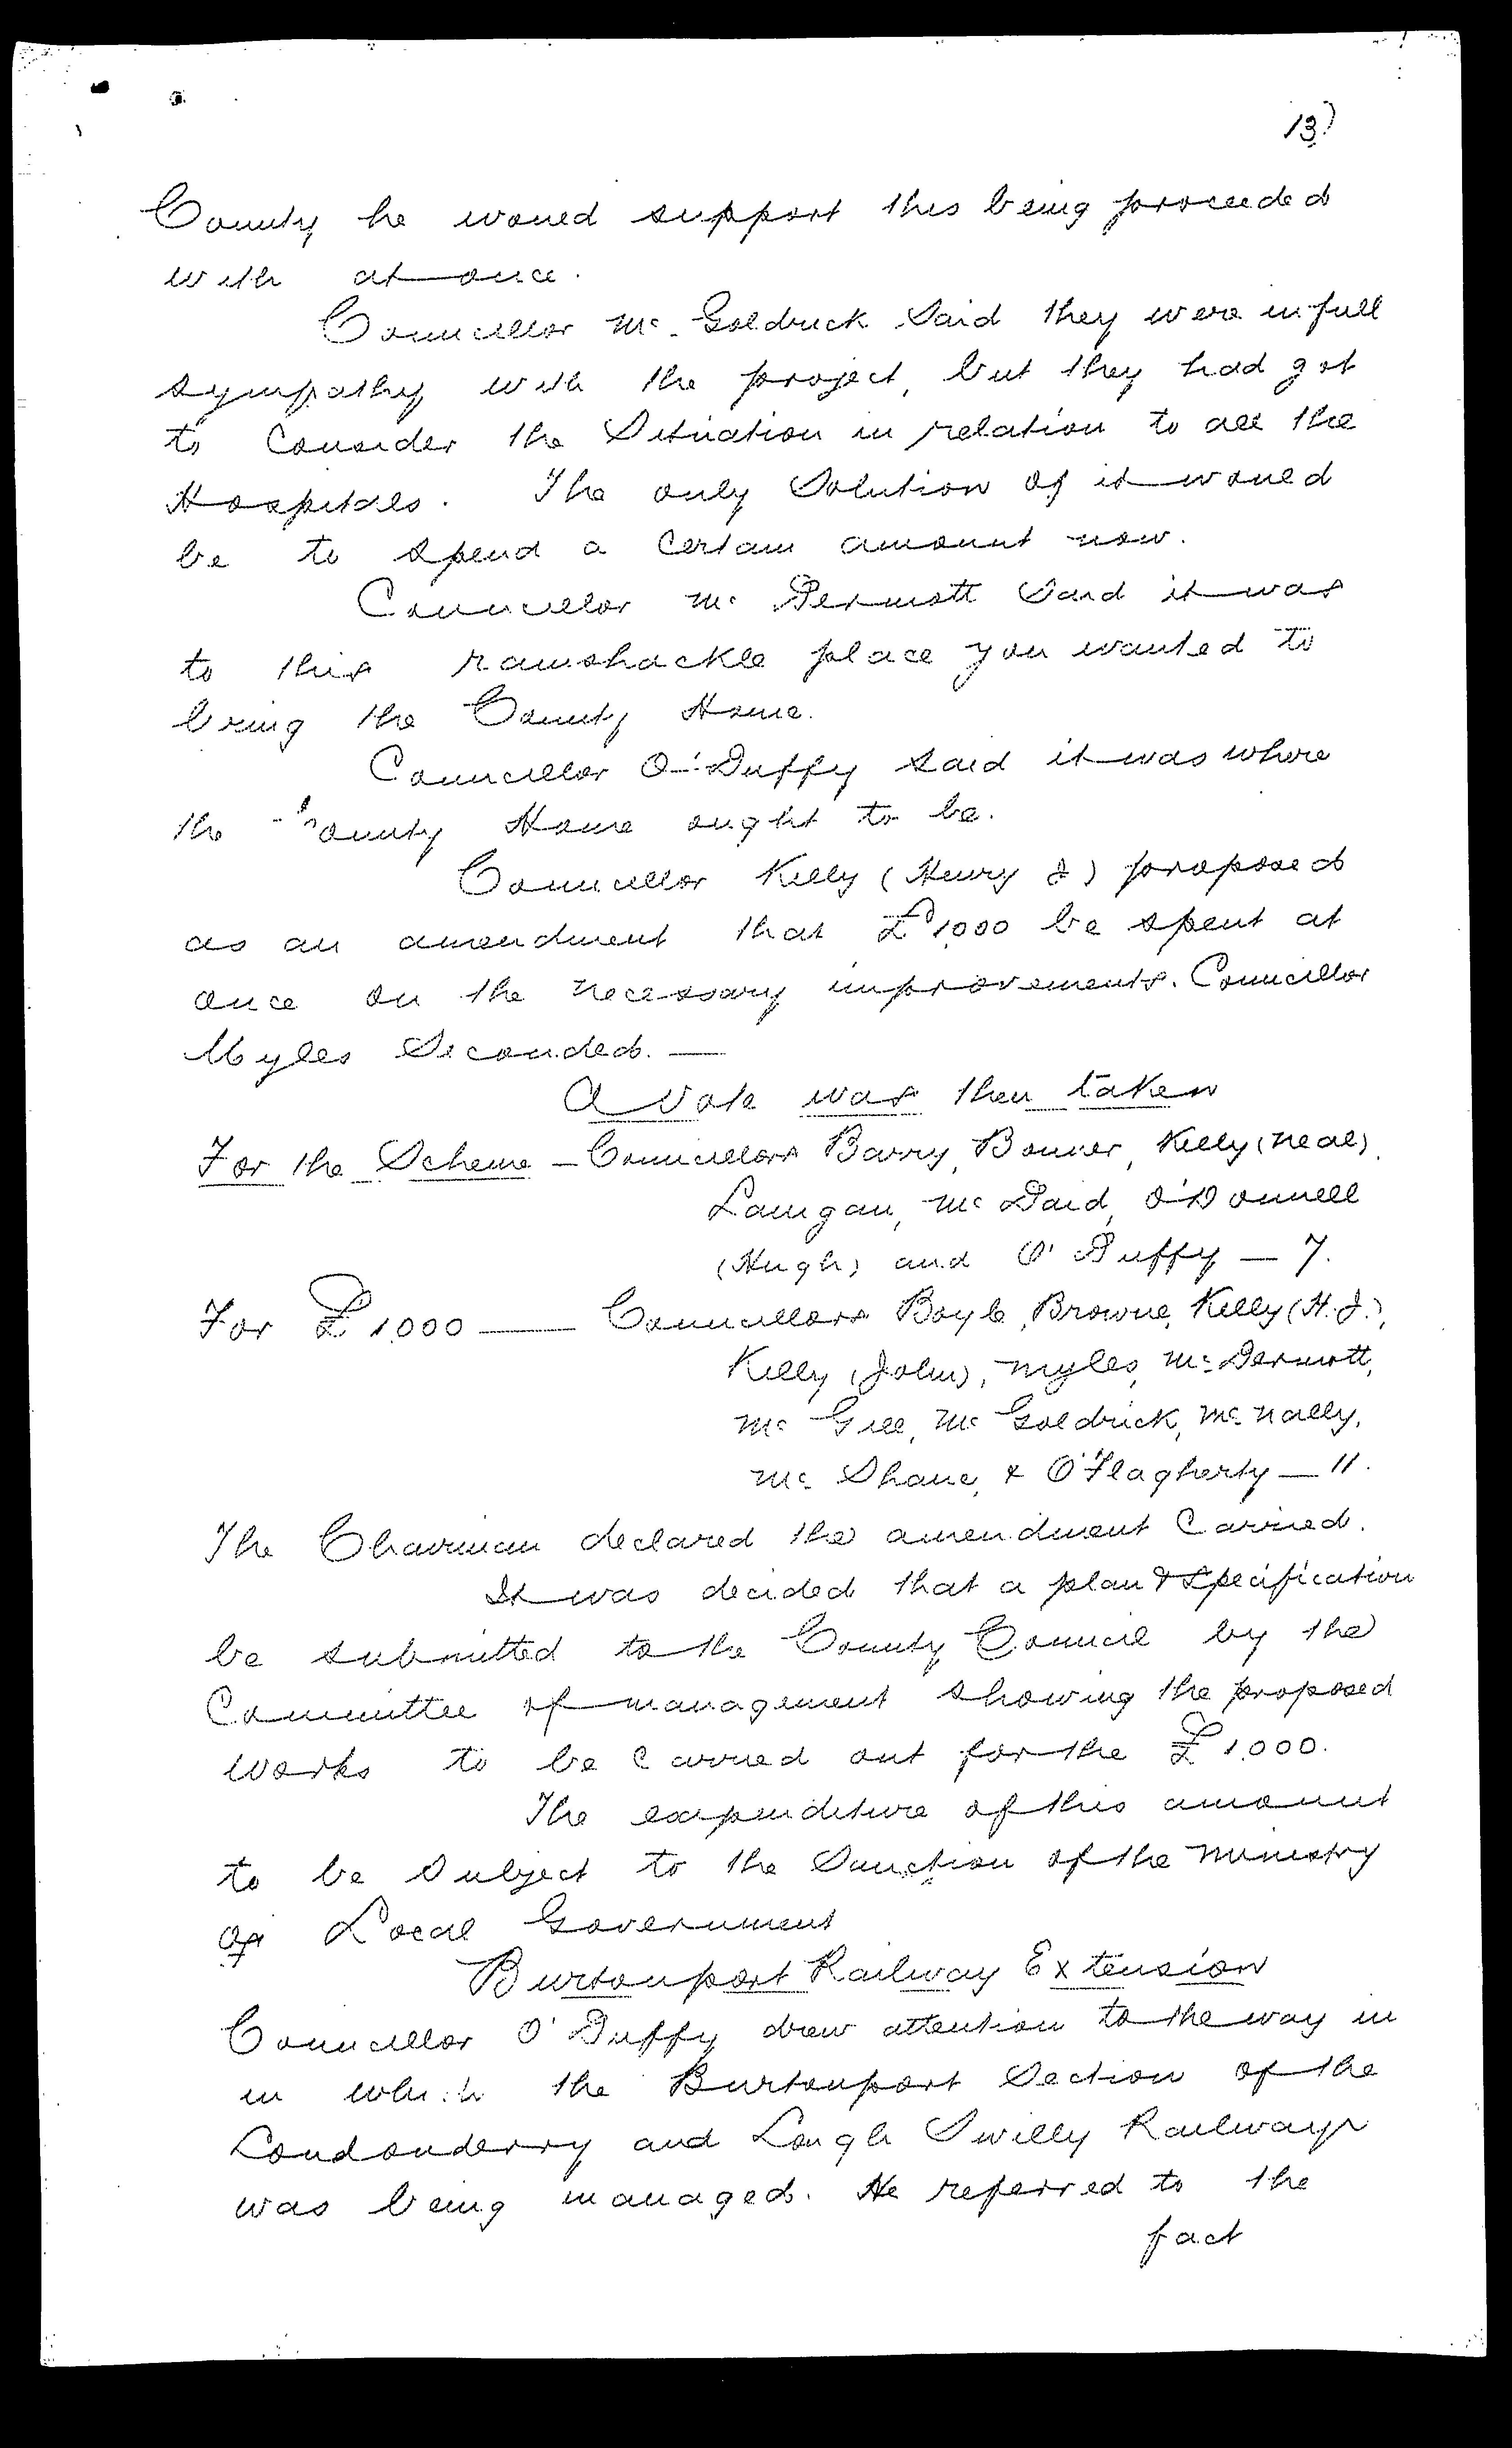 13)
County he would support this being proceeded
with at once.
Councillor Mc. Goldrick said they were in full
sympathy with the project, but they had got
to consider the situation in relation to all the
Hospitals. The only solution of it would
be to spend a certain amount now.
Councillor Mc Dermott said it was
to this ramshackle place you wanted to
bring the County Home.
Councillor O'Duffy said it was where
the County Home ought to be.
Councillor Kelly (Henry J) proposed
as an amendment that £1,000 be spent at
once on the necessary improvements. Councillor
Myles Seconded. —
A Vote was then taken
For the Scheme — Councillors Barry, Bonner, Kelly (Neal),
Langan, Mc Daid, O'Donnell
(Hugh) and O'Duffy — 7.
For £1,000 — Councillors Boyle, Browne, Kelly (H.J.),
Kelly (John), Myles, Mc Dermott,
Mc Gill, Mc Goldrick, Mc Nally,
Mc Shane, & O'Flagherty — 11.
The Chairman declared the amendment Carried.
It was decided that a plan & specification
be submitted to the County Council by the
Committee of management showing the proposed
works to be carried out for the £1,000.
The expenditure of this amount
to be subject to the Sanction of the Ministry
of Local Government
Burtonport Railway Extension
Councillor O'Duffy drew attention to the way in
in which the Burtonport Section of the
Londonderry and Lough Swilly Railways
was being managed. He referred to the
fact